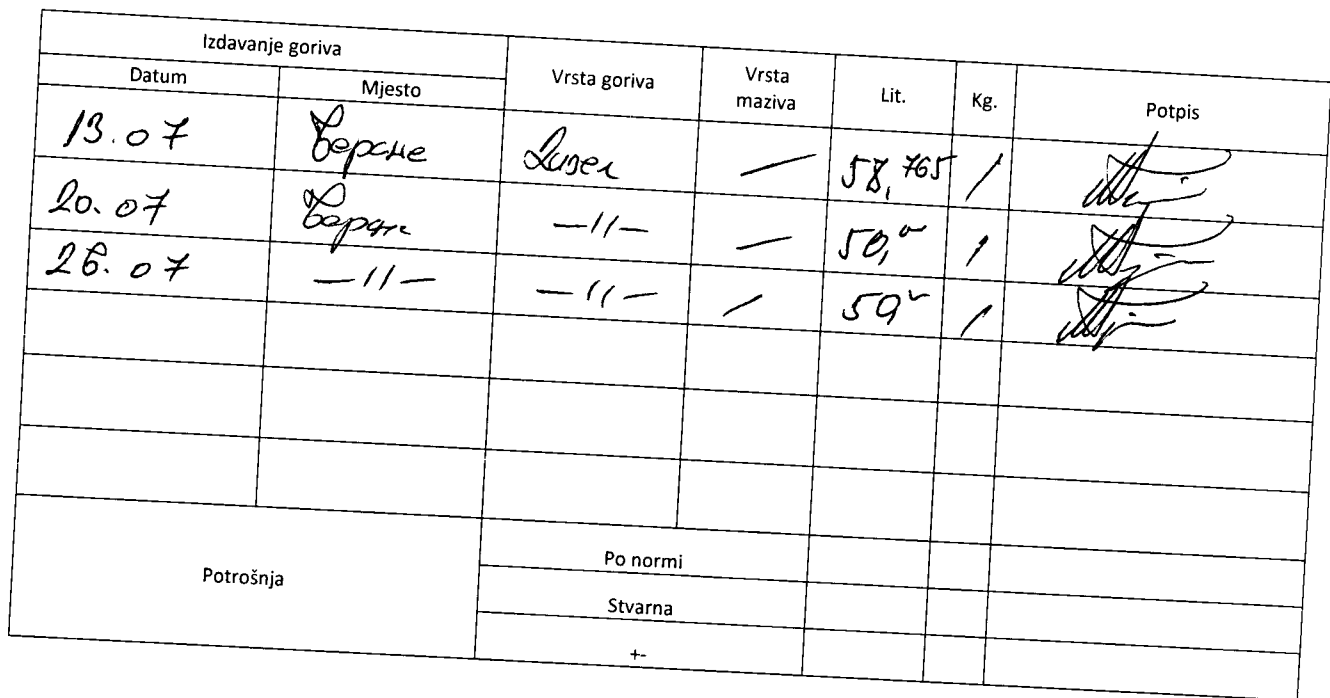 Izdavanje goriva Vrsta goriva Vrsta maziva Lit. Kg. Potpis
Datum Mjesto
13.07 Беране Дизел — 58,765 /
20.07 Беране —//— — 50,00 /
26.07 —//— —//— /
Potrošnja
Po normi
Stvarna
+-